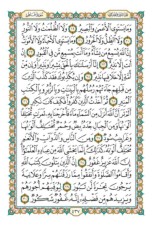 وَمَا يَسْتَوِي الْأَعْمَىٰ وَالْبَصِيرُ ١٩ وَلَا الظُّلُمَاتُ وَلَا النُّورُ
٢٠ وَلَا الظِّلُّ وَلَا الْحَرُورُ ٢١ وَمَا يَسْتَوِي الْأَحْيَاءُ وَلَا الْأَمْوَاتُ
إِنَّ اللَّهَ يُسْمِعُ مَن يَشَاءُ وَمَا أَنتَ بِمُسْمِعٍ مَّن فِي الْقُبُورِ ٢٢
إِنْ أَنتَ إِلَّا نَذِيرٌ ٢٣ إِنَّا أَرْسَلْنَاكَ بِالْحَقِّ بَشِيرًا وَنَذِيرًا وَإِن مِّنْ
أُمَّةٍ إِلَّا خَلَا فِيهَا نَذِيرٌ ٢٤ وَإِن يُكَذِّبُوكَ فَقَدْ كَذَّبَ الَّذِينَ
مِن قَبْلِهِمْ جَاءَتْهُمْ رُسُلُهُم بِالْبَيِّنَاتِ وَبِالزُّبُرِ وَبِالْكِتَابِ
الْمُنِيرِ ٢٥ ثُمَّ أَخَذْتُ الَّذِينَ كَفَرُوا فَكَيْفَ كَانَ نَكِيرِ ٢٦
أَلَمْ تَرَ أَنَّ اللَّهَ أَنزَلَ مِنَ السَّمَاءِ مَاءً فَأَخْرَجْنَا بِهِ ثَمَرَاتٍ مُّخْتَلِفًا
أَلْوَانُهَا وَمِنَ الْجِبَالِ جُدَدٌ بِيضٌ وَحُمْرٌ مُّخْتَلِفٌ أَلْوَانُهَا
وَغَرَابِيبُ سُودٌ ٢٧ وَمِنَ النَّاسِ وَالدَّوَابِّ وَالْأَنْعَامِ مُخْتَلِفٌ
أَلْوَانُهُ كَذَٰلِكَ إِنَّمَا يَخْشَى اللَّهَ مِنْ عِبَادِهِ الْعُلَمَاءُ
إِنَّ اللَّهَ عَزِيزٌ غَفُورٌ ٢٨ إِنَّ الَّذِينَ يَتْلُونَ كِتَابَ اللَّهِ
وَأَقَامُوا الصَّلَاةَ وَأَنفَقُوا مِمَّا رَزَقْنَاهُمْ سِرًّا وَعَلَانِيَةً
يَرْجُونَ تِجَارَةً لَّن تَبُورَ ٢٩ لِيُوَفِّيَهُمْ أُجُورَهُمْ
وَيَزِيدَهُم مِّن فَضْلِهِ إِنَّهُ غَفُورٌ شَكُورٌ ٣٠
٤٣٧